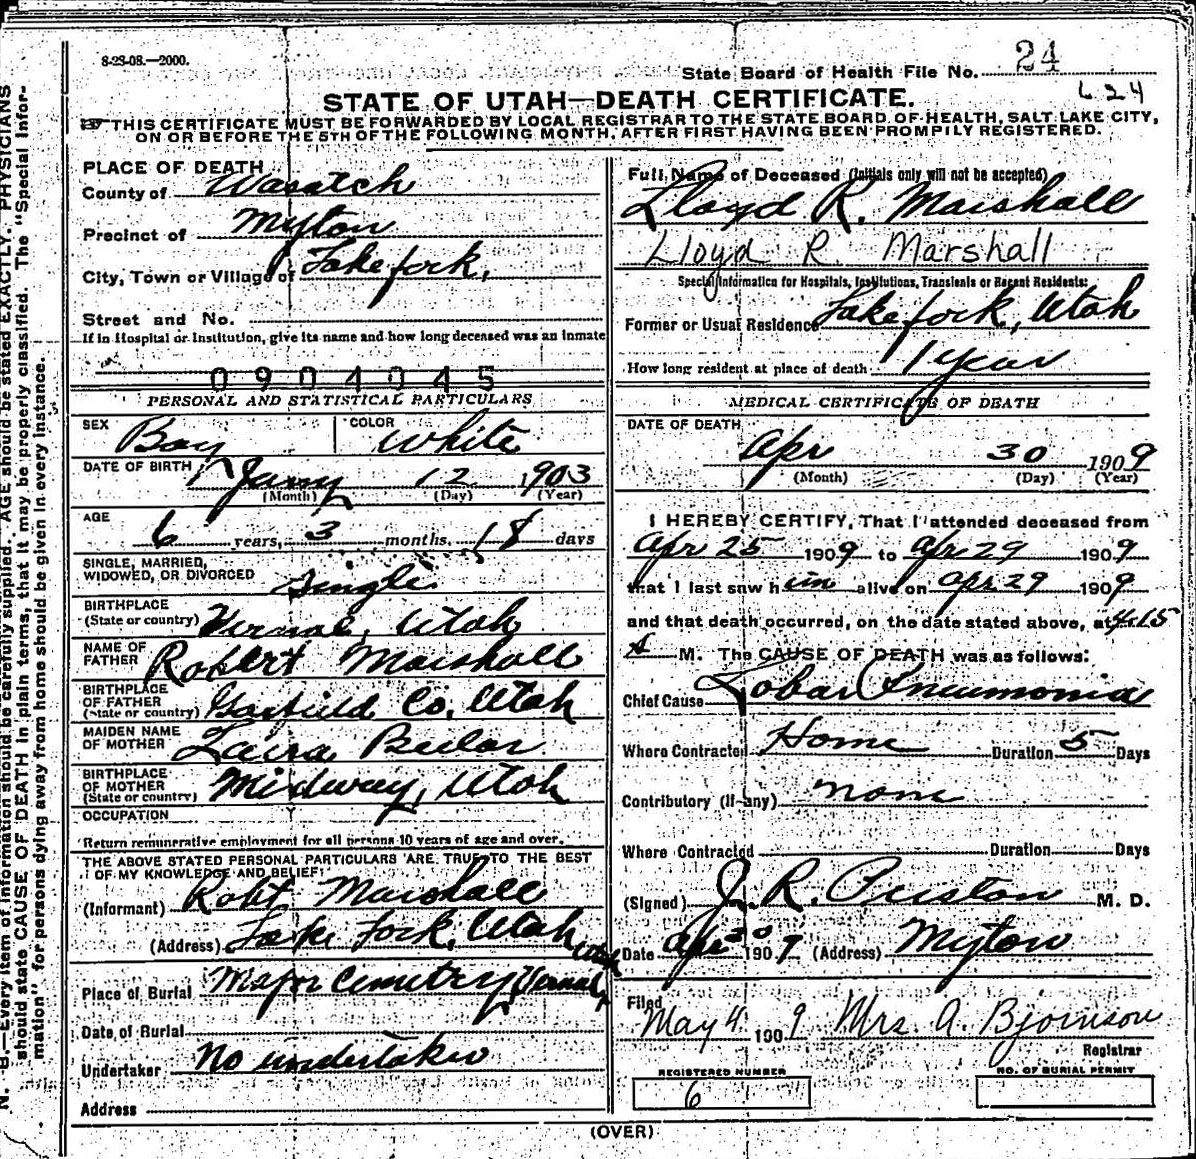 8-23-08.—2000.
State Board of Health File No. 24
L24
STATE OF UTAH—DEATH CERTIFICATE.
THIS CERTIFICATE MUST BE FORWARDED BY LOCAL REGISTRAR TO THE STATE BOARD OF HEALTH, SALT LAKE CITY,
ON OR BEFORE THE 5TH OF THE FOLLOWING MONTH, AFTER FIRST HAVING BEEN PROMPILY REGISTERED.
PLACE OF DEATH
County of Wasatch
Precinct of Myton
City, Town or Village of Lake fork,
Street and No.
If in Hospital or Institution, give its name and how long deceased was an inmate
0904045
PERSONAL AND STATISTICAL PARTICULARS
SEX Boy COLOR White
DATE OF BIRTH Jany 12 1903
(Month) (Day) (Year)
AGE 6 years, 3 months, 18 days
SINGLE, MARRIED,
WIDOWED, OR DIVORCED Single
BIRTHPLACE
(State or country) Vernal, Utah
NAME OF
FATHER Robert Marshall
BIRTHPLACE
OF FATHER
(State or country) Garfield Co. Utah
MAIDEN NAME
OF MOTHER Laura
BIRTHPLACE
OF MOTHER
(State or country) Midway, Utah
OCCUPATION
Return remunerative employment for all persons 10 years of age and over.
THE ABOVE STATED PERSONAL PARTICULARS ARE TRUE TO THE BEST
OF MY KNOWLEDGE AND BELIEF
(Informant) Robt Marshall
(Address) Lake Fork, Utah
Place of Burial Major Cemetery, Vernal, Utah
Date of Burial
Undertaker No undertaker
Address
Full Name of Deceased (Initials only will not be accepted)
Lloyd R. Marshall
Lloyd R Marshall
Special Information for Hospitals, Institutions, Transients or Recent Residents:
Former or Usual Residence Lake fork, Utah
How long resident at place of death 1 year
MEDICAL CERTIFICATE OF DEATH
DATE OF DEATH
Apr 30 1909
(Month) (Day) (Year)
I HEREBY CERTIFY, That I attended deceased from
Apr 25 1909 to Apr 29 1909
that I last saw him alive on Apr 29 1909
and that death occurred, on the date stated above, at 4:15
A M. The CAUSE OF DEATH was as follows:
Chief Cause Lobar Pneumonia
Where Contracted Home Duration 5 Days
Contributory (if any) none
Where Contracted Duration Days
(Signed) J. R. M. D.
Date Apr 30 1909 (Address) Myton
Filed
May 4 1909 Mrs. A. Bjornson
Registrar
REGISTERED NUMBER
6
NO. OF BURIAL PERMIT
(OVER)
N. B.—Every item of information should be carefully supplied. AGE should be stated EXACTLY. PHYSICIANS
should state CAUSE OF DEATH in plain terms, that it may be properly classified. The "Special Infor-
mation" for persons dying away from home should be given in every instance.